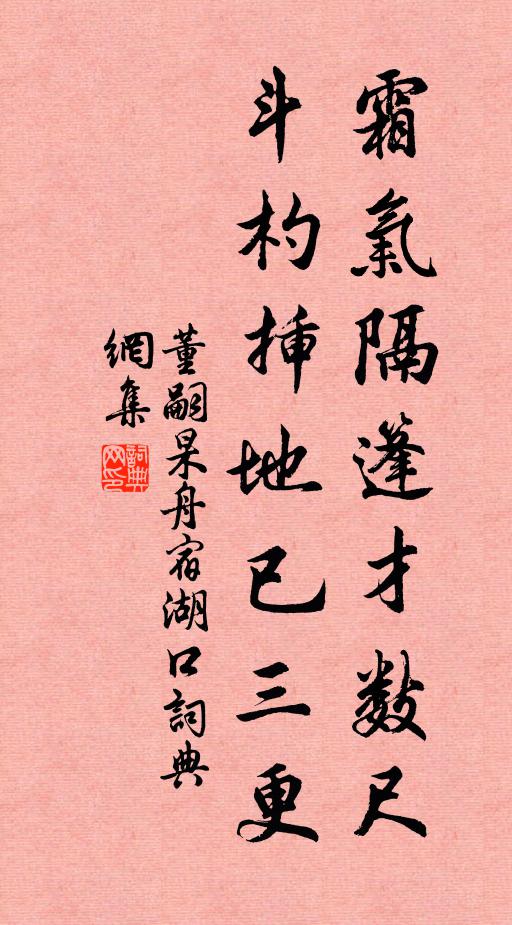 霜氣隔篷才數尺
斗杓揷地已三更
董嗣杲舟宿湖口詞典
網集
詞典
网印